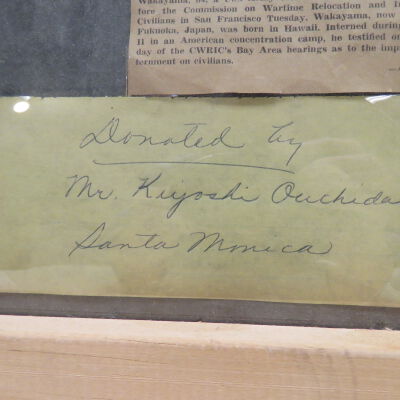 Wakayama, 84, a
fore the Commission on Wartime Relocation and
Civilians in San Francisco Tuesday. Wakayama, now
Fukuoka, Japan, was born in Hawaii. Interned during
II in an American concentration camp, he testified on
day of the CWRIC's Bay Area hearings as to the imp
ternment on civilians.
Donated by
Mr. Kiyoshi Ouchida
Santa Monica